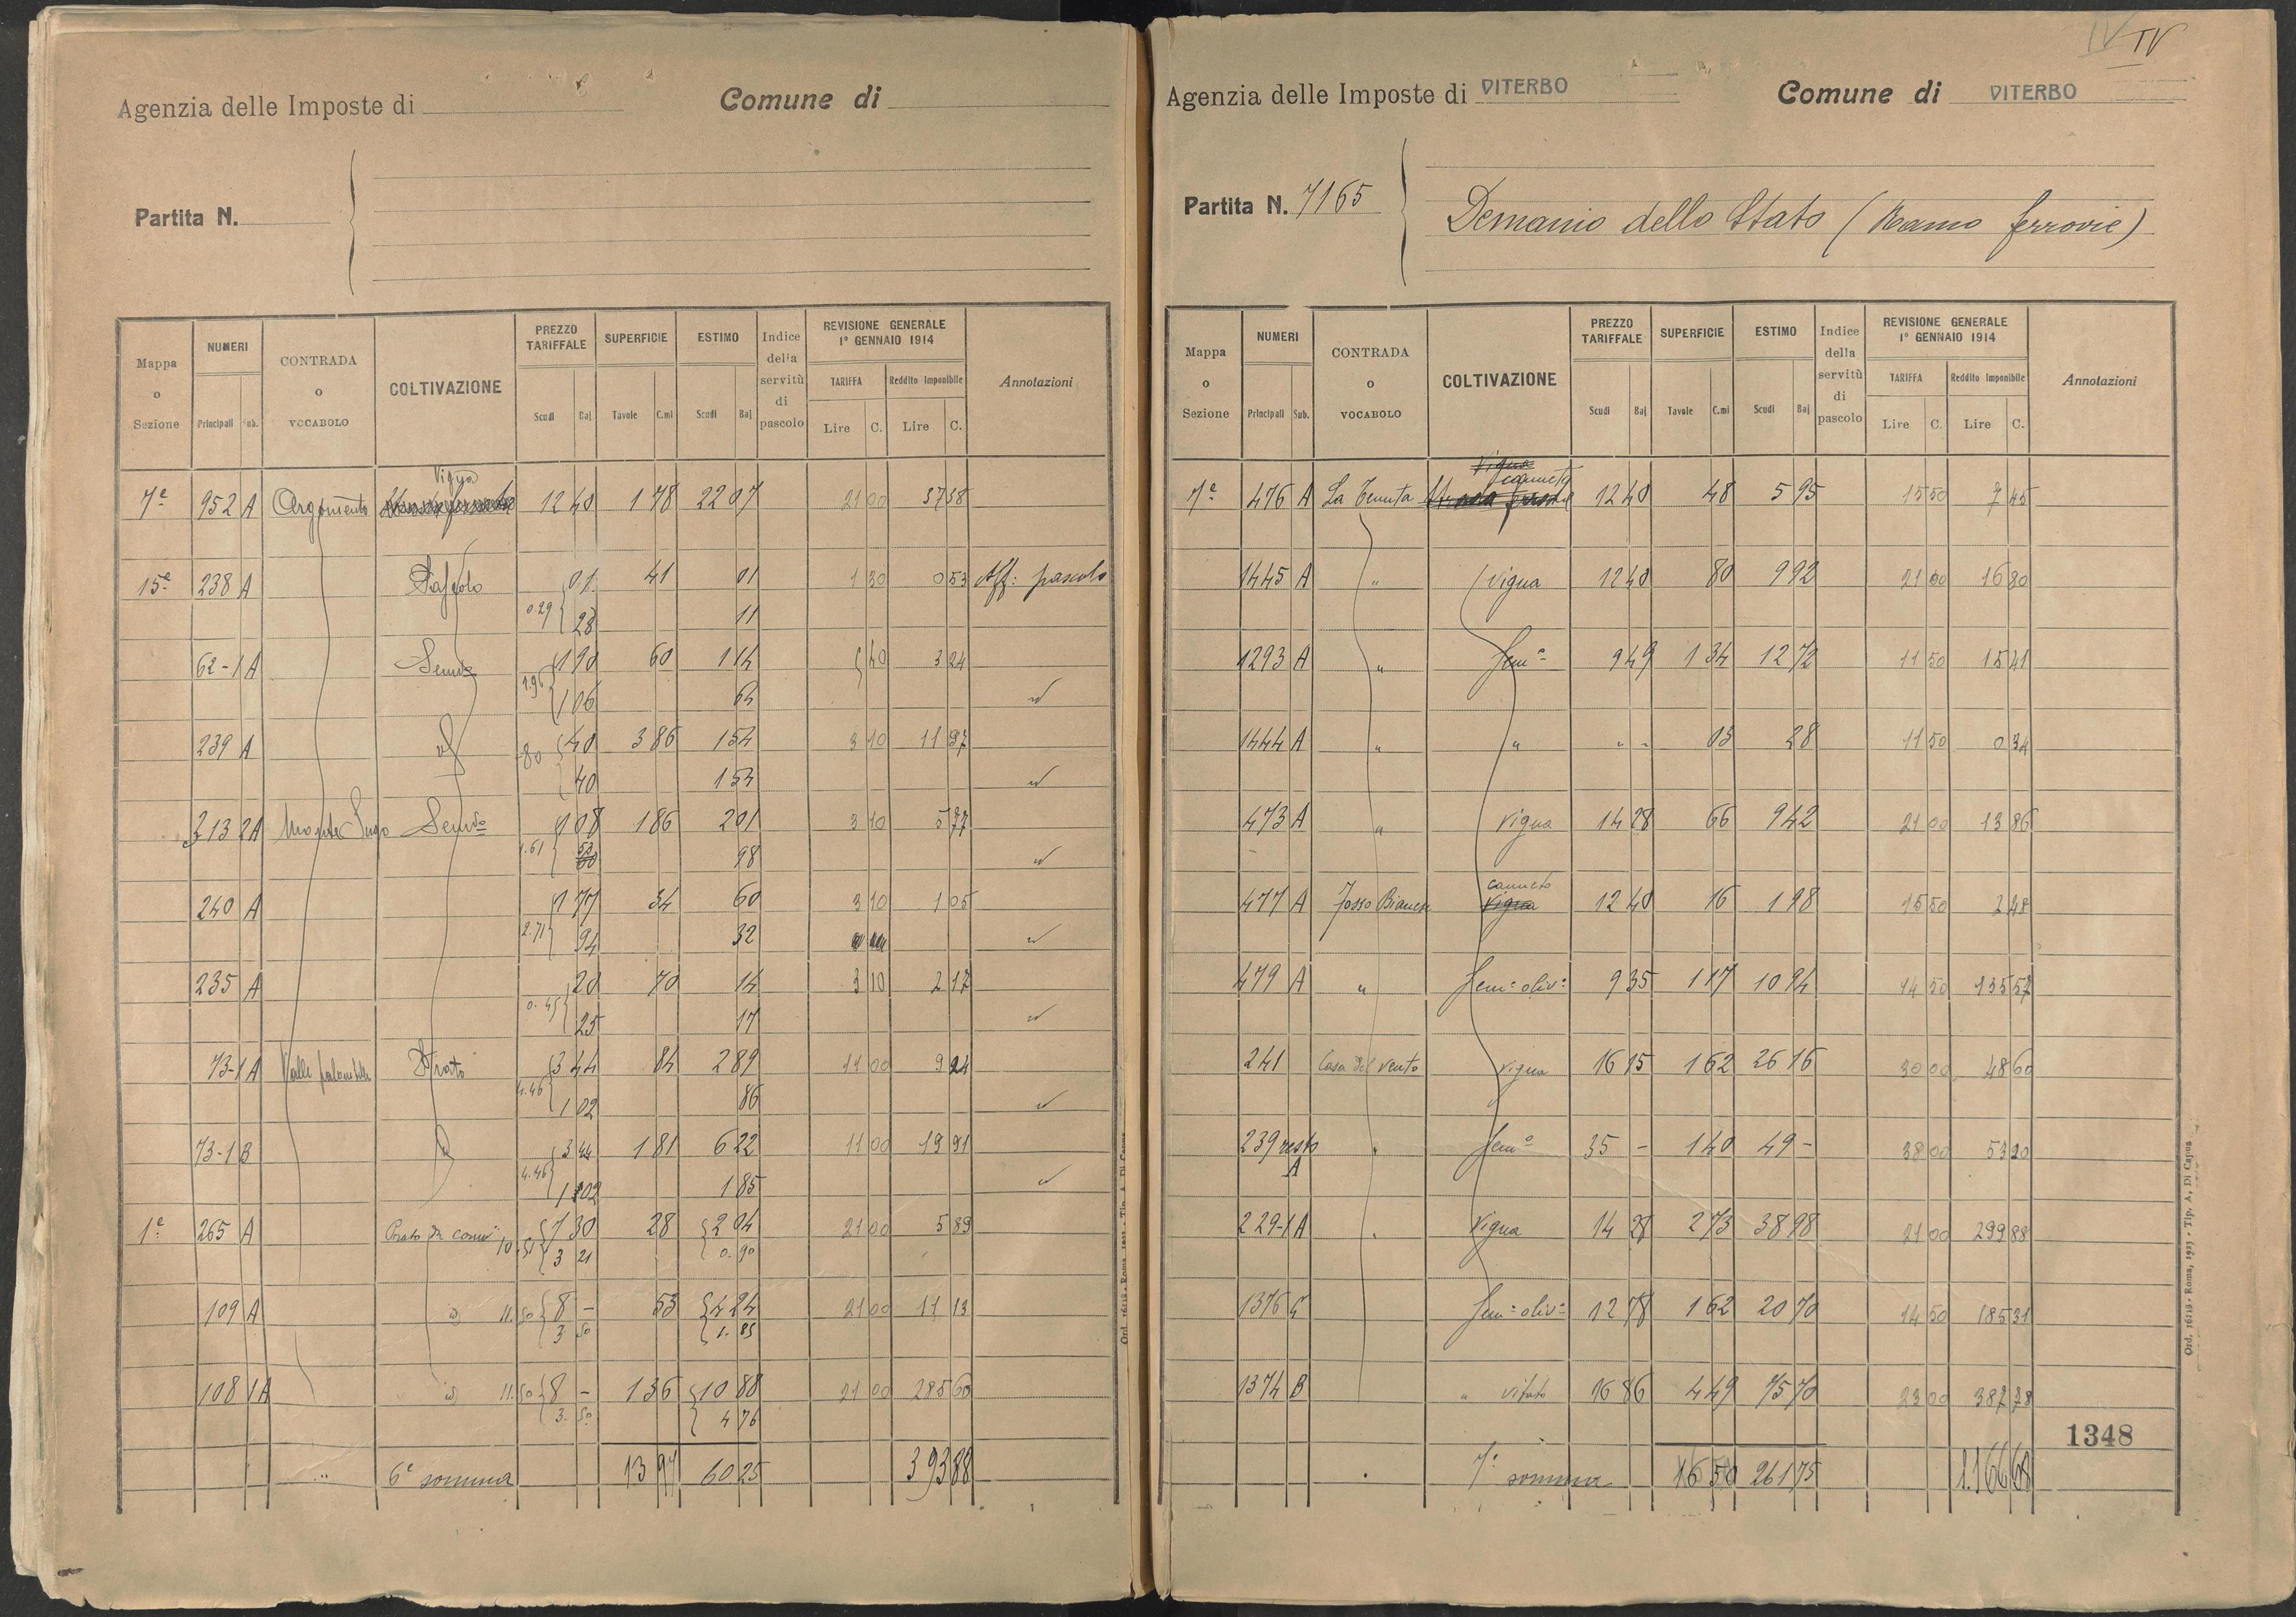 Agenzia delle Imposte di
Comune di
Partita N.
Mappa o Sezione
NUMERI
Principali
Sub.
CONTRADA o VOCABOLO
COLTIVAZIONE
PREZZO TARIFFALE
Scudi
Baj
SUPERFICIE
Tavole
C.mi
ESTIMO
Scudi
Baj
Indice della servitù di pascolo
REVISIONE GENERALE 1° GENNAIO 1914
TARIFFA
Lire
C.
Reddito Imponibile
Lire
C.
Annotazioni
Vigna
7ª 952 A Argomento 12 40 1 78 22 07 21 00 37 38
15ª 238 A Pascolo 01 41 01 1 30 0 53 Aff: pascolo
0.29 28 11
62-1 A Semvo 1 90 60 1 14 40 3 24
1.96 1 06 64
239 A id 80 40 3 86 1 54 3 10 11 97
40 1 54
213 2A Semvo 1 08 1 86 2 01 3 10 5 77
1.61 53 98
240 A 1 77 34 60 3 10 1 05
2.71 94 32
235 A 20 70 14 3 10 2 17
0.45 25 17
73-1 A Prato 3 44 84 2 89 11 00 9 24
4.46 1 02 86
73-1 B 3 44 1 81 6 22 11 00 19 91
4.46 1 02 1 85
1ª 265 A 10.51 7 30 28 2 04 21 00 5 89
3 21 0.90
109 A id 11.50 8 - 53 4 24 21 00 11 13
3 50 1.85
108 1A id 11.50 8 - 1 36 10 88 21 00 285 60
3.50 4 76
6ª somma 13 97 60 25 393 88
Ord. 16118 - Roma, 1923 - Tip. A. Di Capua
IV IV
Agenzia delle Imposte di VITERBO
Comune di VITERBO
Partita N. 7165
Demanio dello Stato (Ramo ferrovie)
Mappa o Sezione
NUMERI
Principali
Sub.
CONTRADA o VOCABOLO
COLTIVAZIONE
PREZZO TARIFFALE
Scudi
Baj
SUPERFICIE
Tavole
C.mi
ESTIMO
Scudi
Baj
Indice della servitù di pascolo
REVISIONE GENERALE 1° GENNAIO 1914
TARIFFA
Lire
C.
Reddito Imponibile
Lire
C.
Annotazioni
Vigna
canneto
7ª 476 A La Tenuta Strada ferrata 12 40 48 5 95 15 50 7 45
1445 A " Vigna 12 40 80 9 92 21 00 16 80
1293 A " Semo 9 49 1 34 12 72 11 50 15 41
1444 A " " " " 03 28 11 50 0 34
473 A " Vigna 14 28 66 9 42 21 00 13 86
canneto
477 A Fosso Vigna 12 40 16 1 98 15 50 2 48
479 A " Semo olivo 9 35 1 17 10 94 14 50 135 57
241 Casa del Vento Vigna 16 15 1 62 26 16 30 00 48 60
239 resto A " Semo 35 - 1 40 49 - 38 00 53 20
229-1 A " Vigna 14 28 2 73 38 98 21 00 299 88
1376 Semo olivo 12 78 1 62 20 70 14 50 185 31
1374 B " vitato 16 86 4 49 75 70 23 00 387 78
7ª somma 16 50 261 75 1.166 68
1348
Ord. 16118 - Roma, 1923 - Tip. A. Di Capua